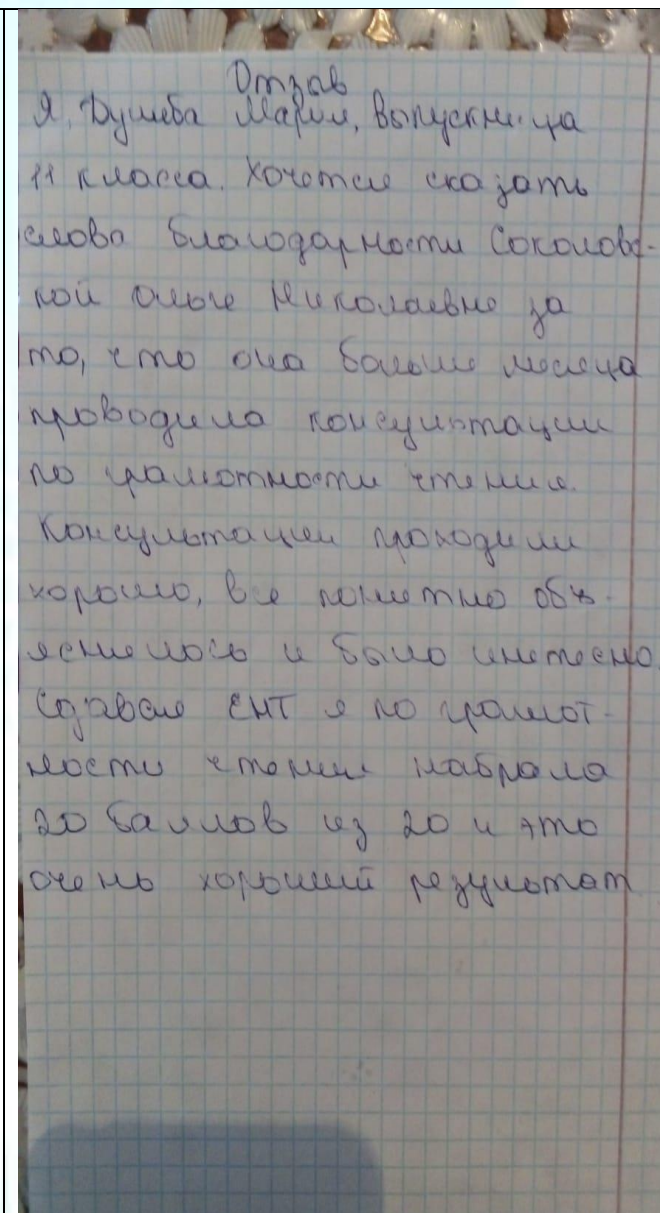 Отзыв
Я, Душеба Мария, выпускница
11 класса. Хочется сказать
слова благодарности Соколовс-
кой Ольге Николаевне за
то, что она больше месяца
проводила консультации
по грамотности чтения.
Консультации проходили
хорошо, все понятно объ-
яснялось и было инетесно
Сдавая ЕНТ я по грамот-
ности чтения набрала
20 баллов из 20 и это
очень хороший результат